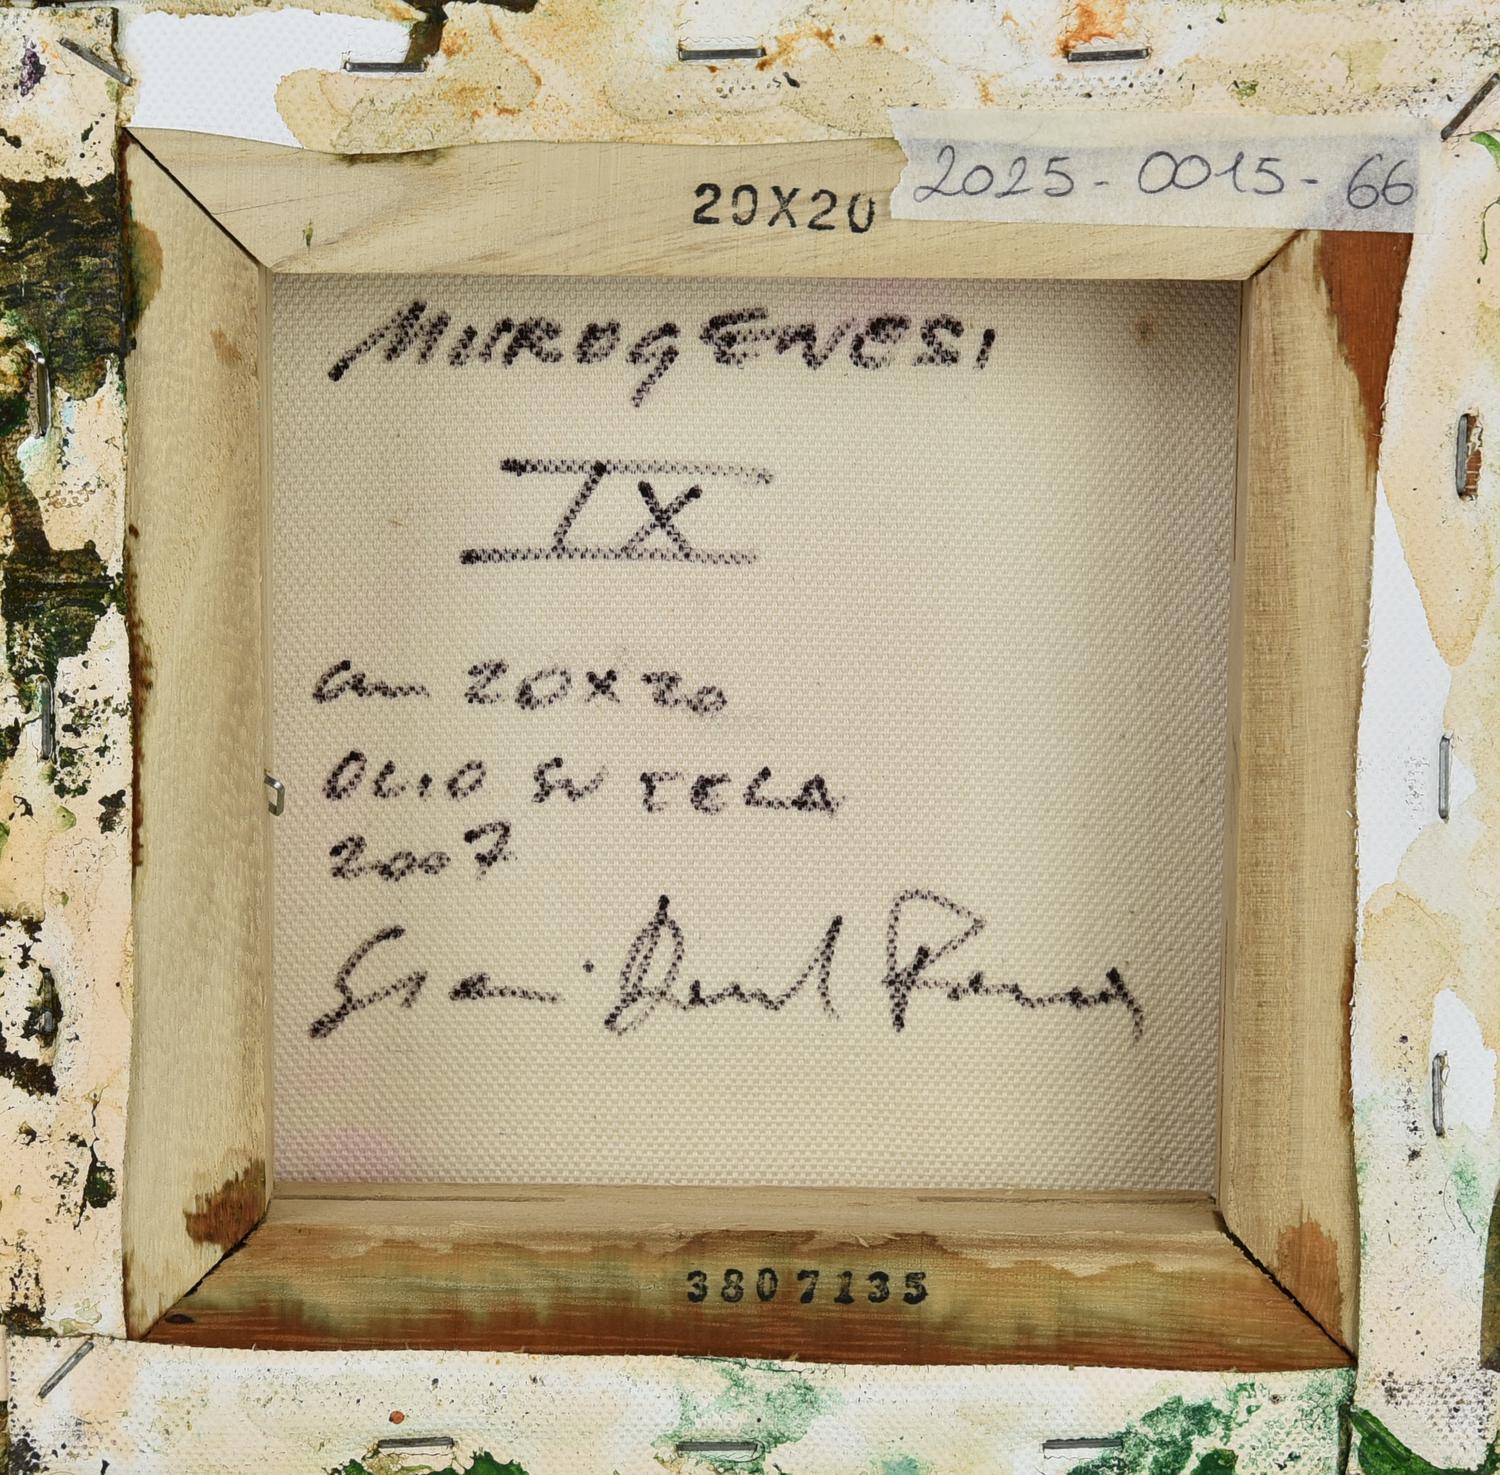 2025-0015-66
20X20
MUROGENESI
IX
cm 20x20
OLIO SU TELA
2007
3807135